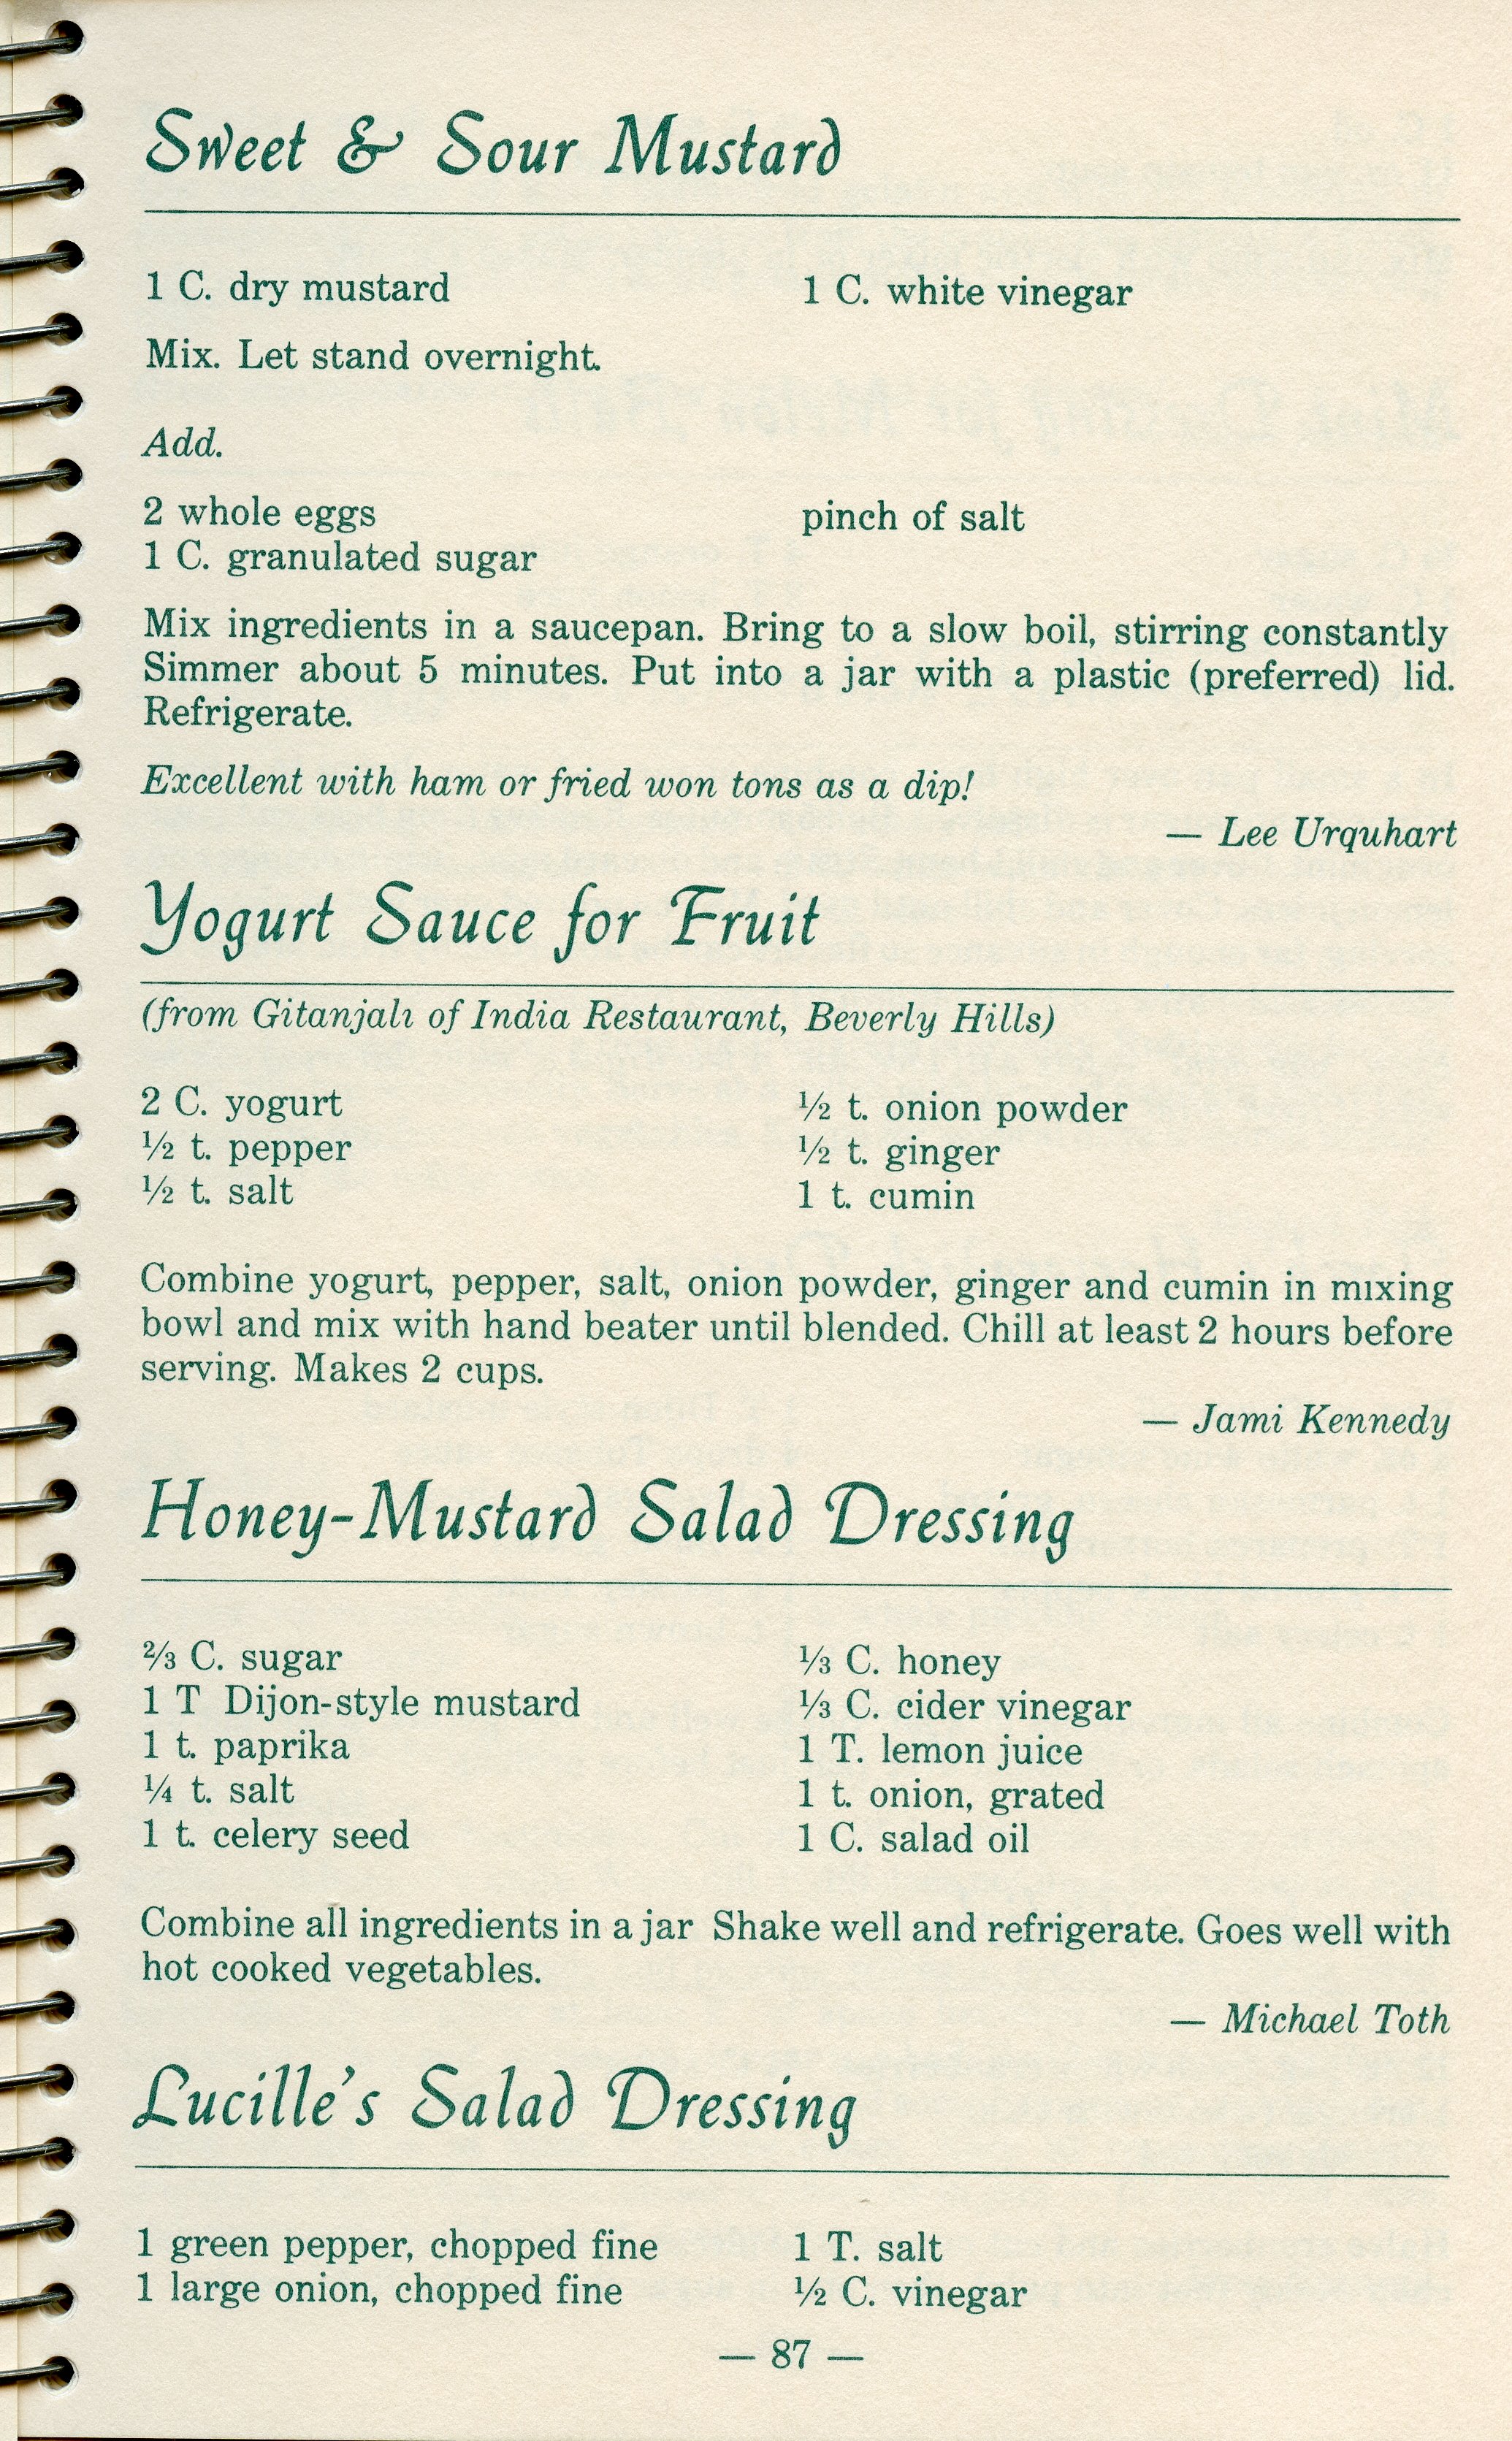 Sweet & Sour Mustard
1 C. dry mustard
1 C. white vinegar
Mix. Let stand overnight.
Add.
2 whole eggs
1 C. granulated sugar
pinch of salt
Mix ingredients in a saucepan. Bring to a slow boil, stirring constantly
Simmer about 5 minutes. Put into a jar with a plastic (preferred) lid.
Refrigerate.
Excellent with ham or fried won tons as a dip!
— Lee Urquhart
Yogurt Sauce for Fruit
(from Gitanjali of India Restaurant, Beverly Hills)
2 C. yogurt
½ t. pepper
½ t. salt
½ t. onion powder
½ t. ginger
1 t. cumin
Combine yogurt, pepper, salt, onion powder, ginger and cumin in mixing
bowl and mix with hand beater until blended. Chill at least 2 hours before
serving. Makes 2 cups.
— Jami Kennedy
Honey-Mustard Salad Dressing
⅔ C. sugar
1 T Dijon-style mustard
1 t. paprika
¼ t. salt
1 t. celery seed
⅓ C. honey
⅓ C. cider vinegar
1 T. lemon juice
1 t. onion, grated
1 C. salad oil
Combine all ingredients in a jar Shake well and refrigerate. Goes well with
hot cooked vegetables.
— Michael Toth
Lucille's Salad Dressing
1 green pepper, chopped fine
1 large onion, chopped fine
1 T. salt
½ C. vinegar
— 87 —